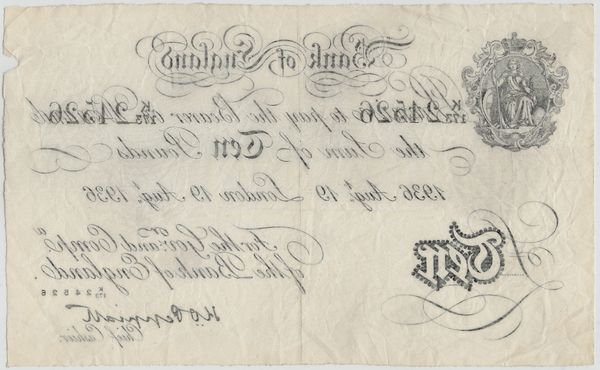 Bank of England
K/173 24526 to pay the Bearer K/173 24526
the Sum of Ten Pounds
1936 Augt. 19 London 19 Augt. 1936
For the Govr. and Compa.
of the Bank of England.
Ten
K/173 24526
K.O. Peppiatt
Chief Cashier.